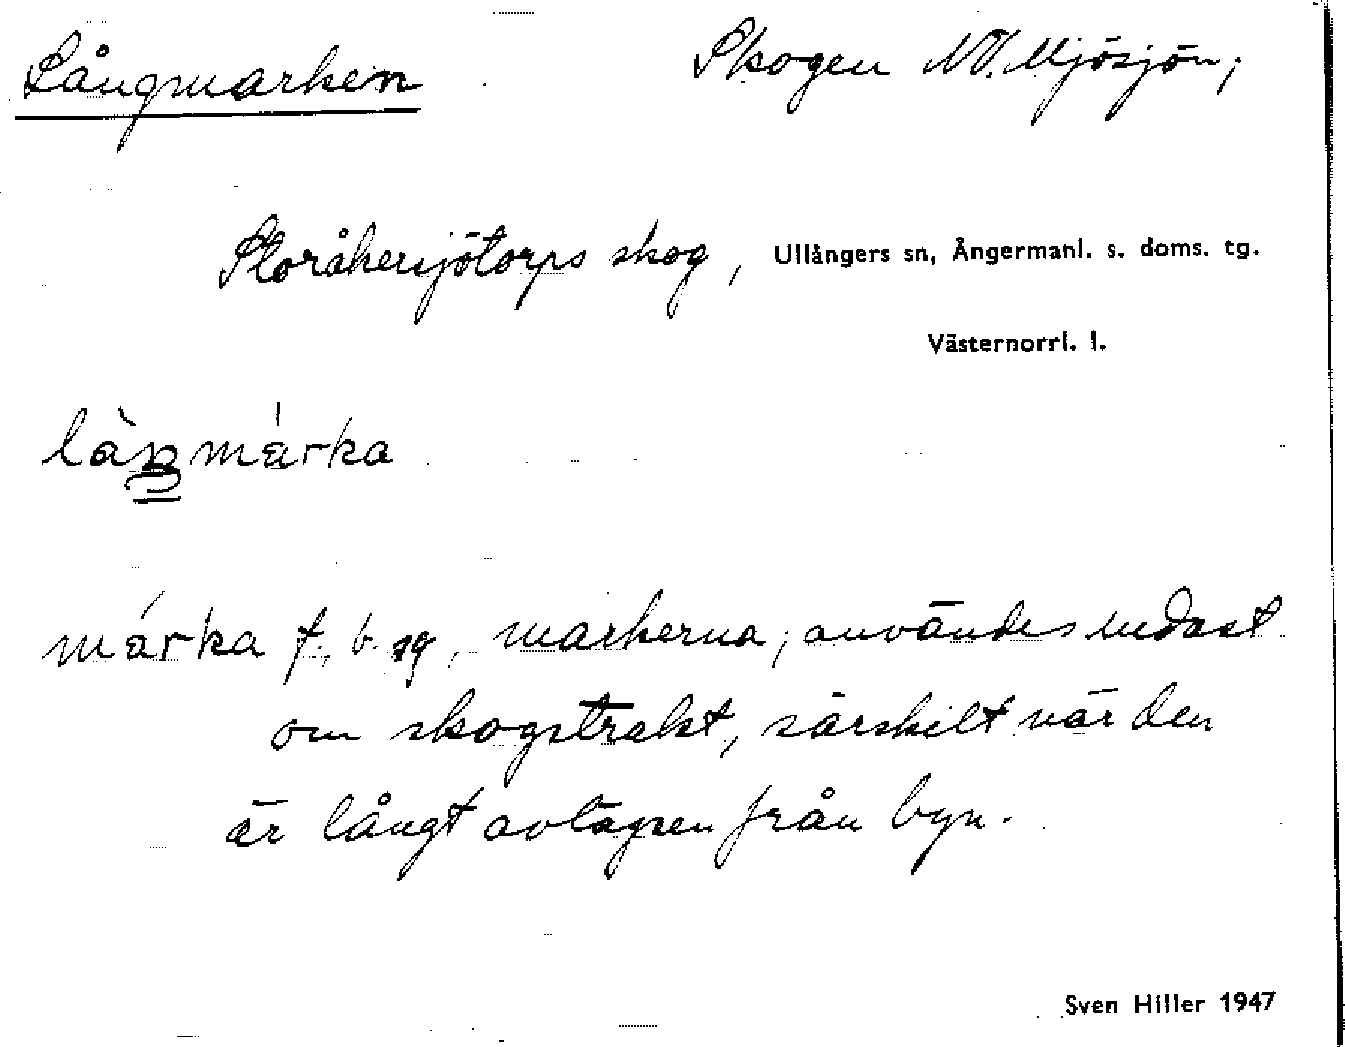 Långmarken Skogen NV. Mjösjön;
Storåkersjötorps skog, Ullångers sn, Ångermanl. s. doms. tg.
Västernorrl. l.
làŋmárka
márka f., b. sg., markerna; användes endast
om skogstrakt, särskilt när den
är långt avlägsen från byn.
Sven Hiller 1947